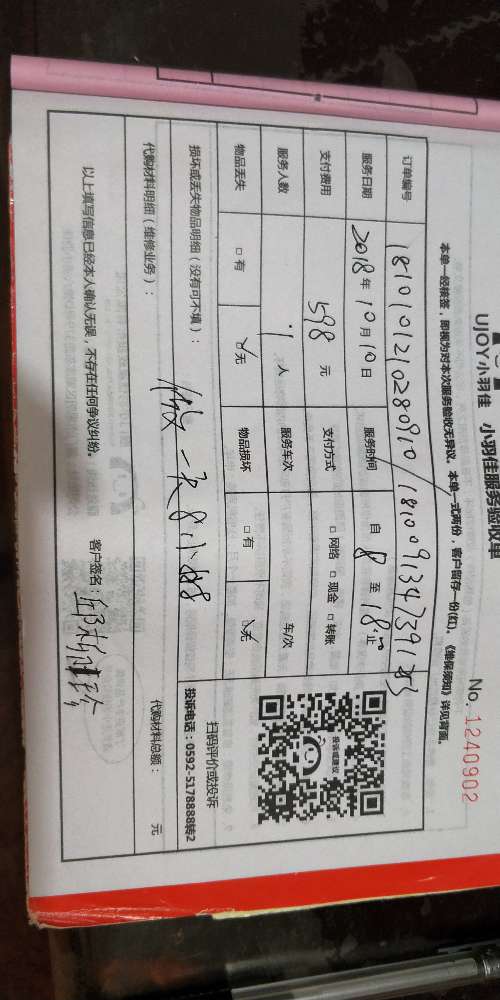 UJOY小羽佳 小羽佳服务验收单
No. 1240902
本单一经接签，即视为对本次服务验收无异议。本单一式两份，客户留存一份(红)。《维保须知》详见背面。
订单编号 181010121028091 0/181009134739183
服务日期 2018年10月10日 服务时间 自8至18:止
支付费用 598元 支付方式 □网络 □现金 □转账
服务人数 1人 服务车次 车/次
物品丢失 □有 ☑无 物品损坏 □有 ☑无
损坏或丢失物品明细（没有可不填）：
做一次8小时
扫码评价或投诉
投诉电话：0592-5178888转2
代购材料明细（维修业务）： 代购材料总额： 元
以上填写信息已经本人确认无误，不存在任何争议纠纷。 客户签名：